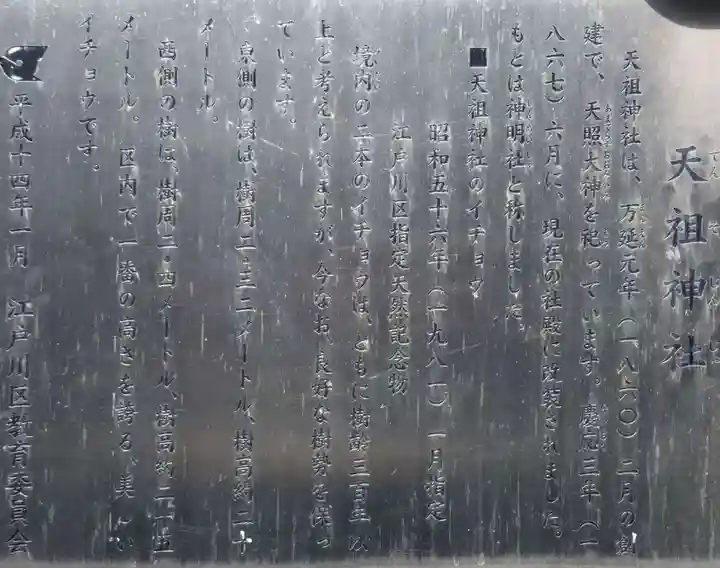 天祖神社
天祖神社は、万延元年（一八六〇）二月の創
建で、天照大神を祀っています。慶応三年（一
八六七）六月に、現在の社殿に改築されました。
もとは神明社と称しました。
■天祖神社のイチョウ
昭和五十六年（一九八一）一月指定
江戸川区指定天然記念物
境内の二本のイチョウは、ともに樹齢三百年以
上と考えられますが、今なお、良好な樹勢を保っ
ています。
東側の樹は、樹周二・三二メートル、樹高約二十
メートル。
西側の樹は、樹周二・四メートル、樹高約二十五
メートル。区内で一番の高さを誇る、美しい
イチョウです。
平成十四年一月　江戸川区教育委員会